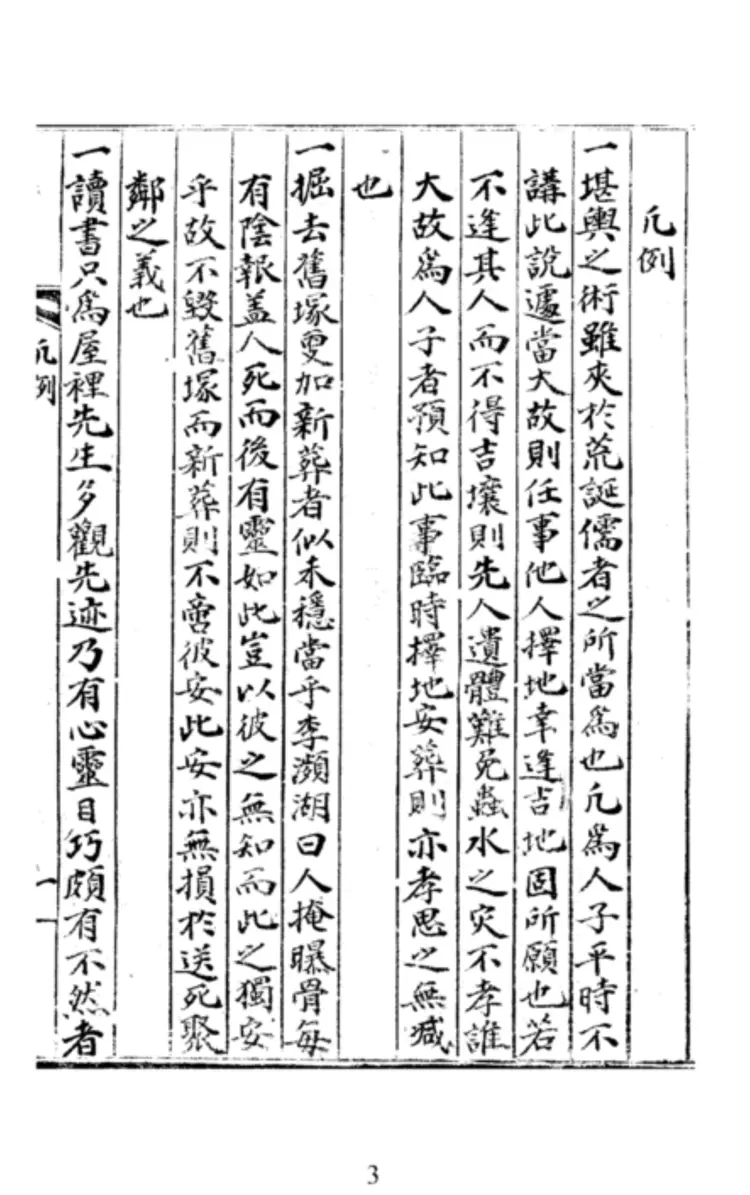 凡例
一堪輿之術雖夾於荒誕儒者之所當爲也凡爲人子平時不
講此說遽當大故則任事他人擇地幸逢吉地固所願也若
不逢其人而不得吉壤則先人遺體難免蟲水之灾不孝誰
大故爲人子者預知此事臨時擇地安葬則亦孝思之無減
也
一掘去舊塚更加新葬者似未穩當乎李瀕湖曰人掩曝骨每
有陰報盖人死而後有靈如此豈以彼之無知而此之獨安
乎故不毀舊塚而新葬則不啻彼安此安亦無損於送死聚
鄰之義也
一讀書只爲屋裡先生多觀先迹乃有心靈目巧頗有不然者
凡例
一
3